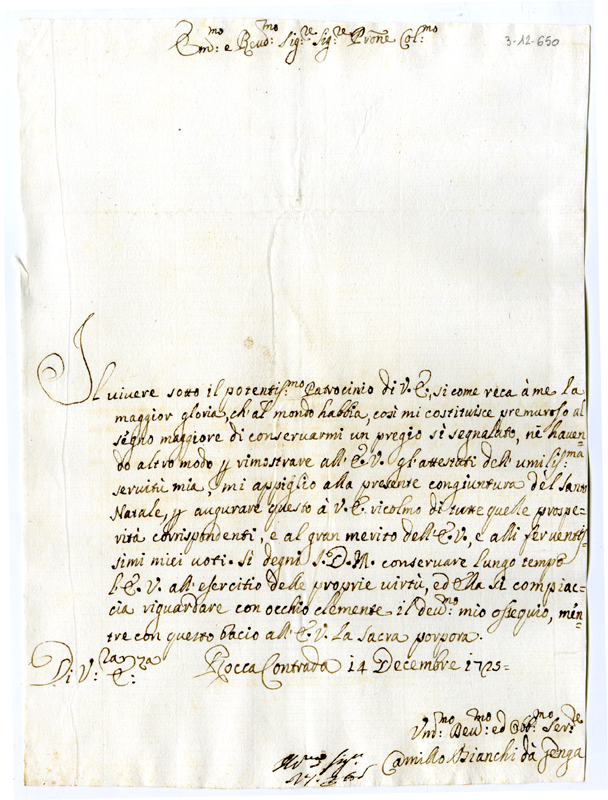 Em:mo e Reud:mo Sig:re Sig:re Prone Col:mo
3-12-650
Il uiuere sotto il potentiss:mo Patrocinio di V. E., si come reca à me la
maggior gloria, ch'al mondo habbia, così mi costituisce premuroso al
segno maggiore di conseruarmi un pregio sì segnalato, nè hauen=
do altro modo p rimostrare all'E. V. gl'attestati dell'umiliss:ma
seruitù mia, mi appiglio alla presente congiuntura dèl santo
Natale, p augurare questo à V. E. ricolmo di tutte quelle prospe=
rità corrispondenti, e al gran merito dell'E. V., e alli feruentis=
simi miei uoti. Si degni S. D. M. conseruare lungo tempo
l'E. V. all'esercitio delle proprie uirtù, ed ella si compiac=
cia riguardare con occhio clemente il deu:mo mio ossequio, mén=
tre con questo bacio all'E. V. la sacra porpora.
Di V:ra E:za Rocca Contrada 14 Decembre 1725=
Vm:mo Deu:mo ed Obb:mo Ser:re
Camillo Bianchi dà Genga